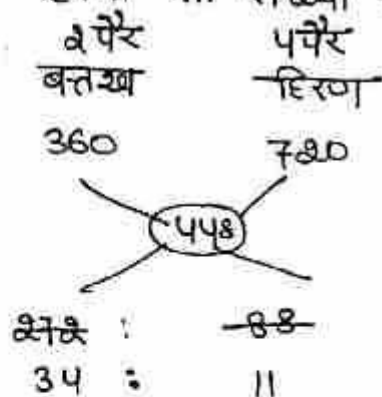 2 पैर 4 पैर
बत्तख हिरण
360 720
448
272 : 88
34 : 11